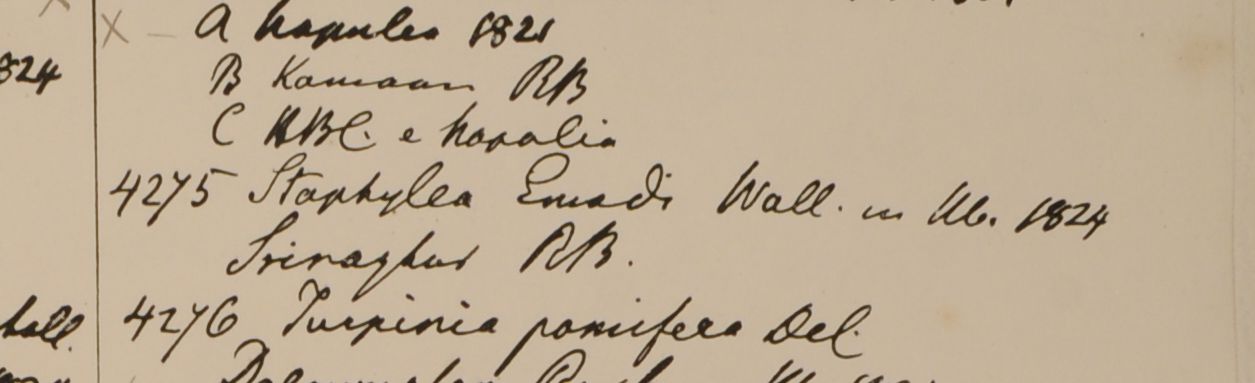 A Napalia 1821
B Kamaon RB
C HBC. e Napalia
4275 Staphylea Emodi Wall. in Hb. 1824
Srinaghur RB.
4276 Turpinia pomifera Del.
824
Wall.